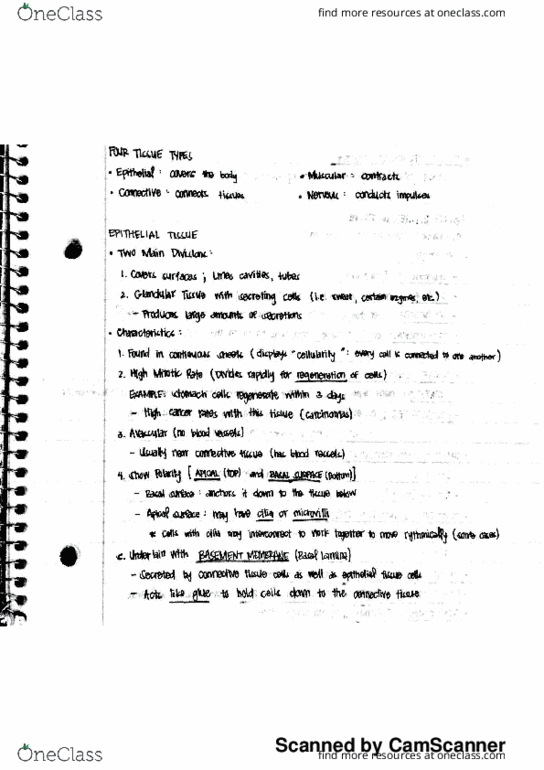 OneClass
find more resources at oneclass.com
FOUR TISSUE TYPES
• Epithelial: covers the body
• Muscular: contracts
• Connective: connects tissues
• Nervous: conducts impulses
EPITHELIAL TISSUE
• Two Main Divisions:
1. Covers surfaces; Lines cavities, tubes
2. Glandular Tissue with secreting cells (i.e. sweat, certain enzymes, etc.)
- Produces large amounts of secretions
• Characteristics:
1. Found in continuous sheets (displays "cellularity": every cell is connected to one another)
2. High Mitotic Rate (Divides rapidly for regeneration of cells)
EXAMPLE: stomach cells regenerate within 3 days
- High cancer rates with this tissue (carcinomas)
3. Avascular (no blood vessels)
- Usually near connective tissue (has blood vessels)
4. Show Polarity [APICAL (TOP) and BASAL SURFACE (Bottom)]
- Basal surface: anchors it down to the tissue below
- Apical surface: may have cilia or microvilli
* Cells with cilia may interconnect to work together to move rythmically (some cases)
5. Underlain with BASEMENT MEMBRANE (Basal Lamina)
- Secreted by connective tissue cells as well as epithelial tissue cells
- Acts like glue to hold cells down to the connective tissue
Scanned by CamScanner
OneClass
find more resources at oneclass.com